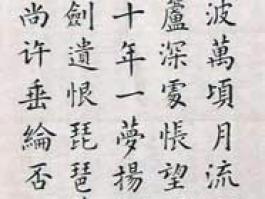 波萬頃月流
蘆深處悵望
十年一夢揚
劍遺恨琵琶
尚许垂綸否